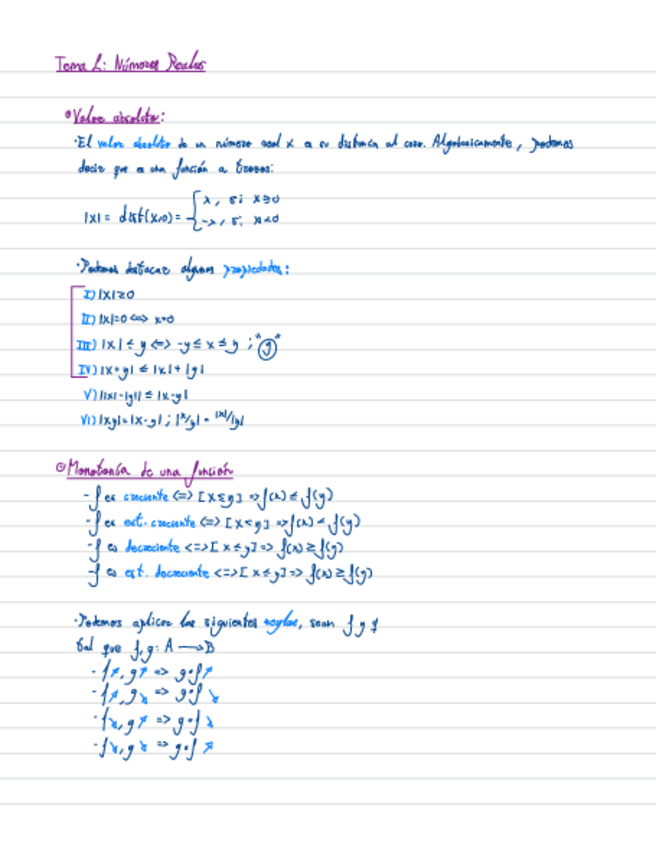 Tema 1: Números Reales
Valor absoluto:
·El valor absoluto de un número real x es su distancia al cero. Algebraicamente, podemos
decir que es una función a trozos:
|x| = dist(x,0) = { x, si x≥0
-x, si x<0
·Podemos destacar algunas propiedades:
I) |x|≥0
II) |x|=0 <=> x=0
III) |x| ≤ y <=> -y ≤ x ≤ y ; "y"
IV) |x+y| ≤ |x| + |y|
V) ||x|-|y|| ≤ |x-y|
VI) |xy|=|x·y| ; |x/y| = |x|/|y|
Monotonía de una función
- f es creciente <=> [x≤y] => f(x) ≤ f(y)
- f es est. creciente <=> [x<y] => f(x) < f(y)
- f es decreciente <=> [x≤y] => f(x) ≥ f(y)
- f es est. decreciente <=> [x≤y] => f(x) ≥ f(y)
·Podemos aplicar las siguientes reglas, sean f y g
tal que f,g: A → B
- f↗, g↗ => g∘f ↗
- f↗, g↘ => g∘f ↘
- f↘, g↗ => g∘f ↘
- f↘, g↘ => g∘f ↗